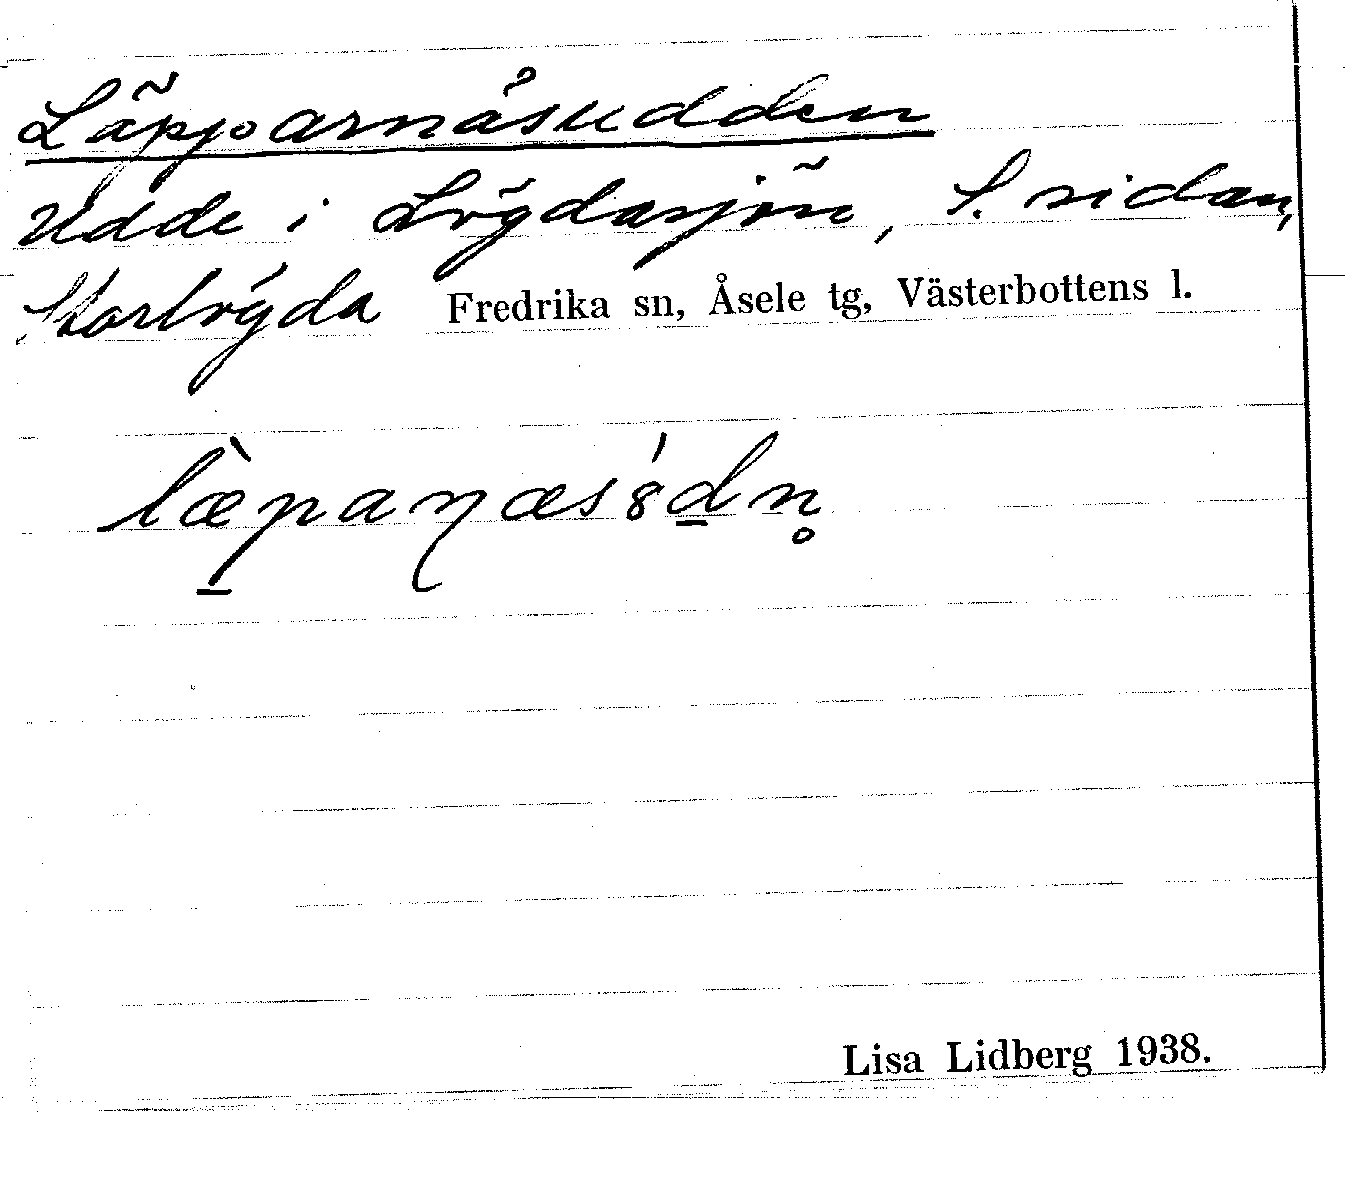 Läpparnåsudden
Udde i Lögdasjön, S. sidan,
Storlögda Fredrika sn, Åsele tg, Västerbottens l.
læ̀paɳæsˈ8dn̥
Lisa Lidberg 1938.